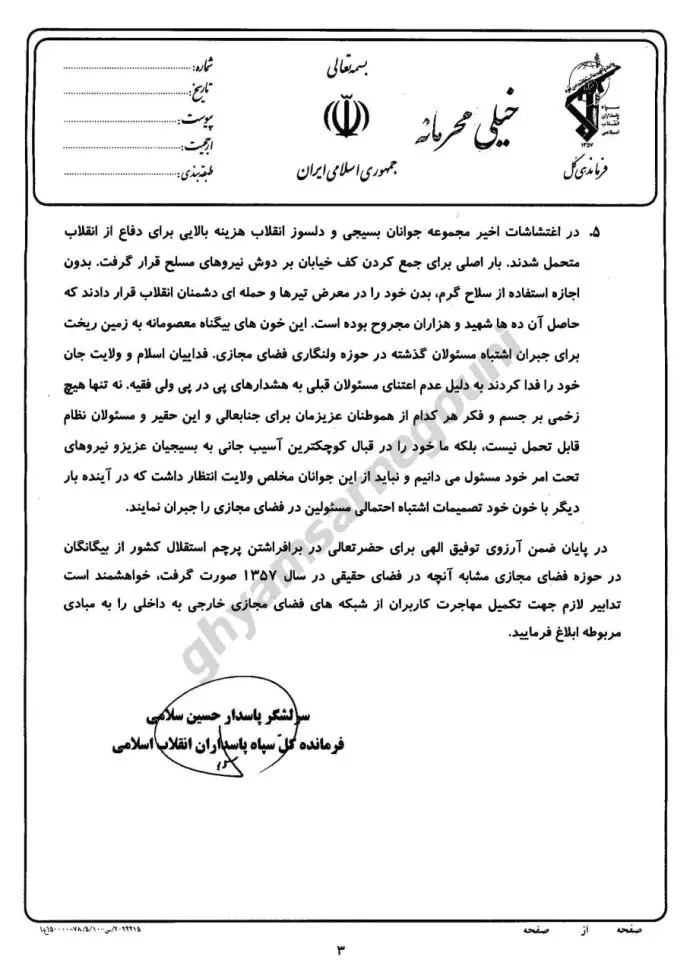 بسمه تعالی
جمهوری اسلامی ایران
خیلی محرمانه
سپاه
پاسداران
انقلاب
اسلامی
۱۳۵۷
فرماندهی کل
شماره:
تاریخ:
پیوست:
ارجحیت:
طبقه‌بندی:
۵. در اغتشاشات اخیر مجموعه جوانان بسیجی و دلسوز انقلاب هزینه بالایی برای دفاع از انقلاب
متحمل شدند. بار اصلی برای جمع کردن کف خیابان بر دوش نیروهای مسلح قرار گرفت. بدون
اجازه استفاده از سلاح گرم، بدن خود را در معرض تیرها و حمله ای دشمنان انقلاب قرار دادند که
حاصل آن ده ها شهید و هزاران مجروح بوده است. این خون های بیگناه معصومانه به زمین ریخت
برای جبران اشتباه مسئولان گذشته در حوزه ولنگاری فضای مجازی. فداییان اسلام و ولایت جان
خود را فدا کردند به دلیل عدم اعتنای مسئولان قبلی به هشدارهای پی در پی ولی فقیه. نه تنها هیچ
زخمی بر جسم و فکر هر کدام از هموطنان عزیزمان برای جنابعالی و این حقیر و مسئولان نظام
قابل تحمل نیست، بلکه ما خود را در قبال کوچکترین آسیب جانی به بسیجیان عزیزو نیروهای
تحت امر خود مسئول می دانیم و نباید از این جوانان مخلص ولایت انتظار داشت که در آینده بار
دیگر با خون خود تصمیمات اشتباه احتمالی مسئولین در فضای مجازی را جبران نمایند.
در پایان ضمن آرزوی توفیق الهی برای حضرتعالی در برافراشتن پرچم استقلال کشور از بیگانگان
در حوزه فضای مجازی مشابه آنچه در فضای حقیقی در سال ۱۳۵۷ صورت گرفت، خواهشمند است
تدابیر لازم جهت تکمیل مهاجرت کاربران از شبکه های فضای مجازی خارجی به داخلی را به مبادی
مربوطه ابلاغ فرمایید.
سرلشگر پاسدار حسین سلامی
فرمانده کلّ سپاه پاسداران انقلاب اسلامی
ghyamsarnegouni
صفحه از صفحه
۳